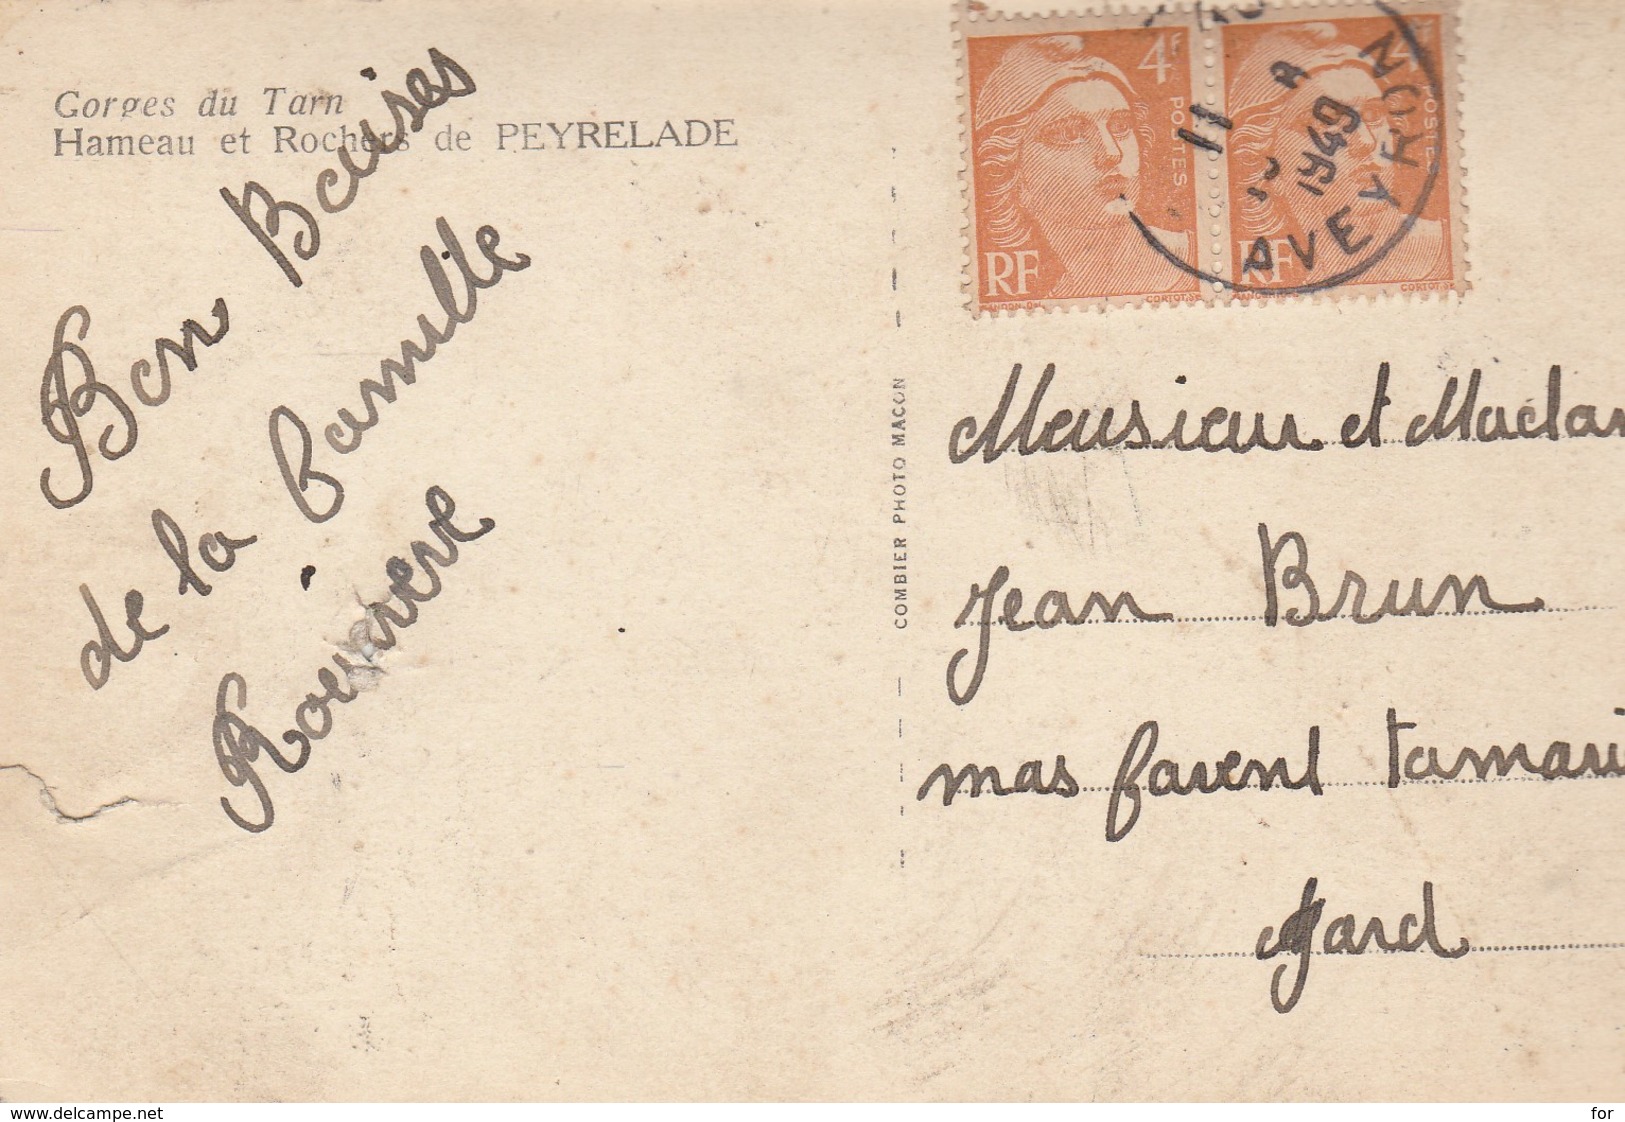 Gorges du Tarn
Hameau et Rochers de PEYRELADE
Bon Baises
de la famille
COMBIER PHOTO MACON
4F
POSTES
RF
CORTOT.SC
4F
POSTES
RF
CORTOT.SC
11
1949
AVEYRON
Monsieur et Madam
Jean Brun
mas favent tamari
gard
www.delcampe.net
for